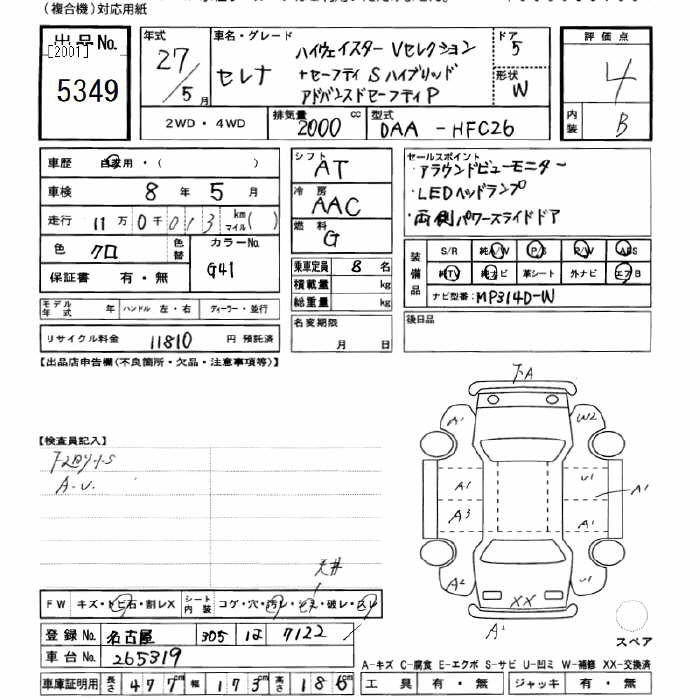 (複合機)対応用紙
出品No.
[2001]
5349
年式
27/5月
車名・グレード
セレナ
ハイウェイスター Vセレクション
+セーフティ Sハイブリッド
アドバンスドセーフティP
ドア
5
形状
W
2WD・4WD
排気量
2000 cc
型式
DAA-HFC26
評価点
4
内装
B
車歴 自家用・( )
車検 8年 5月
走行 11万0千013 km マイル( )
色 クロ 色替
カラーNo.
G41
保証書 有・無
シフト
AT
冷房
AAC
燃料
G
乗車定員 8名
積載量 kg
総重量 kg
セールスポイント
・アラウンドビューモニター
・LEDヘッドランプ
・両側パワースライドドア
装備品
S/R 純A/W P/S P/W ABS
純TV 純ナビ 革シート 外ナビ エアB
ナビ型番: MP314D-W
モデル年式 年 ハンドル 左・右 ディーラー・並行
リサイクル料金 11810 円 預託済
名変期限
月 日
後日品
【出品店申告欄(不良箇所・欠品・注意事項等)】
【検査員記入】
A-U.
下A
A1 W2
A1 U1
A1
A3 A1
A2 U1
XX
A2
スペア
天井
FW キズ・トビ石・割レX
シート内装 コゲ・穴・汚レ・シミ・破レ・スレ
登録No. 名古屋 305 は 7122
車台No. 265319
車庫証明用 長さ 477cm 幅 173cm 高さ 186cm
A-キズ C-腐食 E-エクボ S-サビ U-凹ミ W-補修 XX-交換済
工具 有・無 ジャッキ 有・無